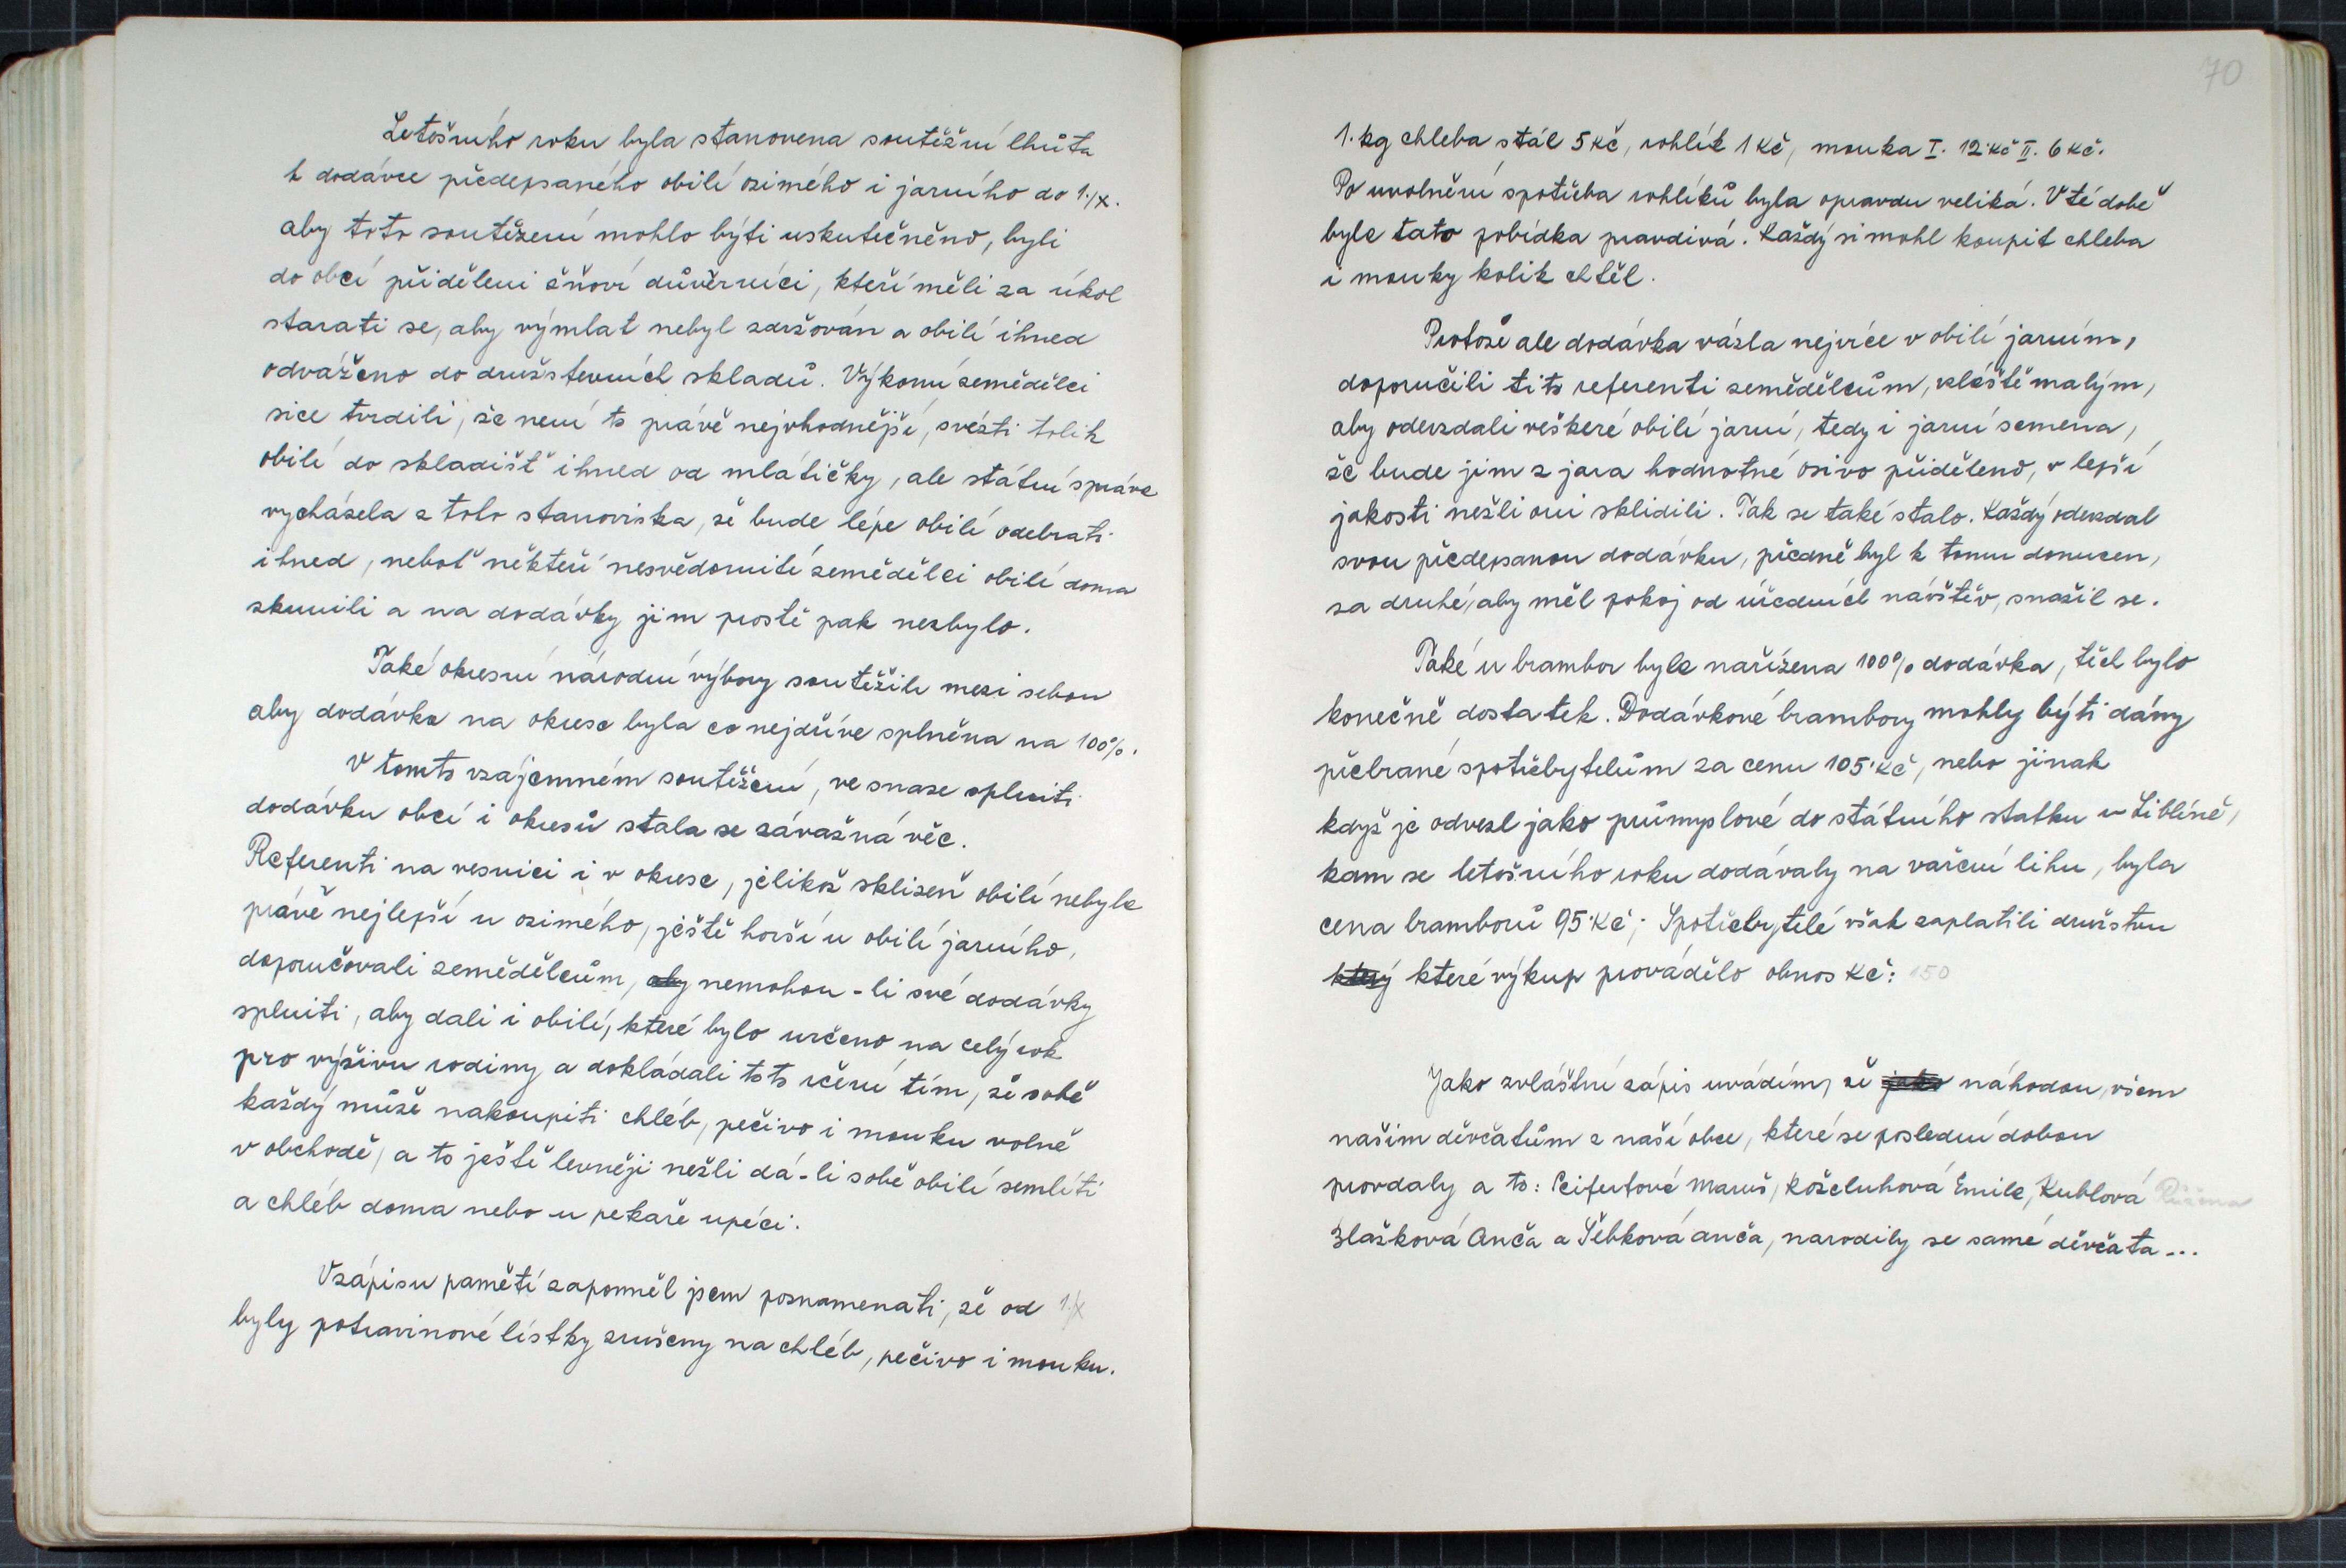 Letošního roku byla stanovena soutěžní lhůta
k dodávce předepsaného obilí ozimého i jarního do 1./X.
aby toto soutěžení mohlo býti uskutečněno, byli
do obcí přiděleni žňoví důvěrníci, kteří měli za úkol
starati se, aby výmlat nebyl zdržován a obilí ihned
odváženo do družstevních skladů. Výkonní zemědělci
sice tvrdili, že není to právě nejvhodnější, svésti tolik
obilí do skladišť ihned od mlátičky, ale státní správa
vycházela z toho stanoviska, že bude lépe obilí odebrati
ihned, neboť někteří nesvědomití zemědělci obilí doma
zkrmili a na dodávky jim prostě pak nezbylo.
Také okresní národní výbory soutěžili mezi sebou
aby dodávka na okrese byla co nejdříve splněna na 100%.
V tomto vzájemném soutěžení, ve snaze splniti
dodávku obcí i okresů stala se závažná věc.
Referenti na vesnici i v okrese, jelikož sklizeň obilí nebyla
právě nejlepší u ozimého, ještě horší u obilí jarního,
doporučovali zemědělcům, aby nemohou-li své dodávky
splniti, aby dali i obilí, které bylo určeno na celý rok
pro výživu rodiny a dokládali toto rčení tím, že sobě
každý může nakoupiti chléb, pečivo i mouku volně
v obchodě, a to ještě levněji nežli dá-li sobě obilí semlíti
a chléb doma nebo u pekaře upéci.
V zápisu pamětí zapomněl jsem poznamenati, že od 1./X
byly potravinové lístky zrušeny na chléb, pečivo i mouku.
70
1.kg chleba stál 5 Kč, rohlík 1 Kč, mouka I. 12 Kč II. 6 Kč.
Po uvolnění spotřeba rohlíků byla opravdu veliká. V té době
byla tato pobídka pravdivá. Každý si mohl koupit chleba
i mouky kolik chtěl.
Protože ale dodávka vázla nejvíce v obilí jarním,
doporučili tito referenti zemědělcům, zvláště malým,
aby odevzdali veškeré obilí jarní, tedy i jarní semena,
že bude jim z jara hodnotné osivo přiděleno, v lepší
jakosti nežli oni sklidili. Tak se také stalo. Každý odevzdal
svou předepsanou dodávku, předně byl k tomu donucen,
za druhé, aby měl pokoj od úředních návštěv, snažil se.
Také u brambor byla nařízena 100% dodávka, těch bylo
konečně dostatek. Dodávkové brambory mohly býti dány
přebrané spotřebytelům za cenu 105 Kč, nebo jinak
když je odvezl jako průmyslové do státního statku v Liblíně,
kam se letošního roku dodávaly na vaření lihu, byla
cena bramborů 95 Kč; Spotřebytelé však zaplatili družstvu
který které výkup provádělo obnos Kč: 150
Jako zvláštní zápis uvádím, že jako náhodou, všem
našim děvčatům z naší obce, které se poslední dobou
provdaly a to: Seifertové Maruš, Košeluhová Emile, Kublová Růžena
Blašková Anča a Šebková Anča, narodily se samé děvčata...